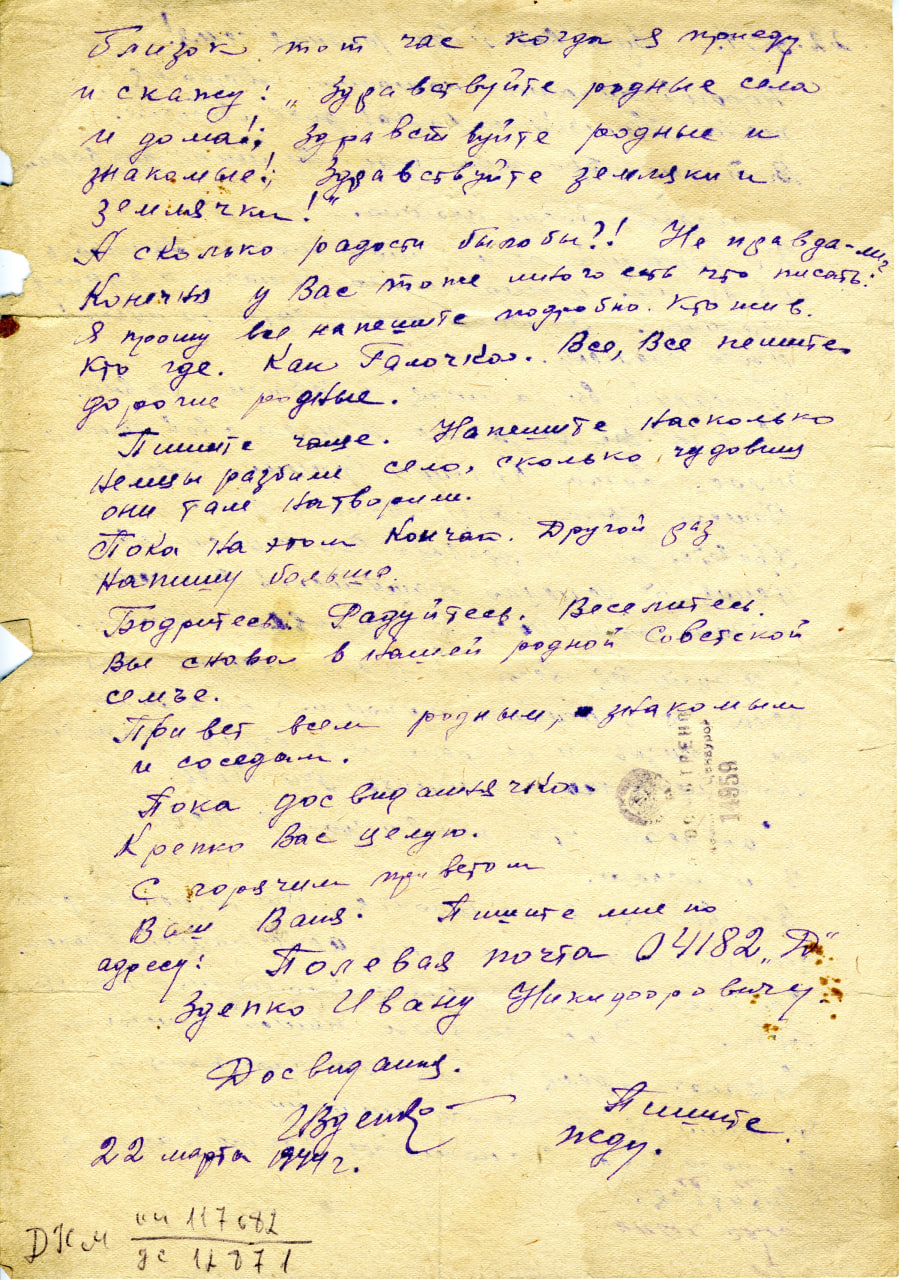 Близок тот час когда я приеду
и скажу: „Здравствуйте родные села
и дома!; Здравствуйте родные и
знакомые!; Здравствуйте земляки и
землячки!"
А сколько радости былобы?! Не правда-ли?
Конечно у Вас тоже много есть что писать.
Я прошу все напешите подробно. Кто жив.
Кто где. Как Галочка. Все, Все пешите
дорогие родные.
Пишите чаще. Напешите насколько
немцы разбили село, сколько чудовищ
они там натворили.
Пока на этом кончаю. Другой раз
напишу больше.
Бодритесь. Радуйтесь. Веселитесь.
Вы снова в нашей родной Советской
семье.
Привет всем родным, знакомым
и соседам.
Пока досвиданячко.
Крепко Вас целую.
С горячим приветом
Ваш Ваня. Пишите мне по
адресу: Полевая почта 04182 „Д"
Зденко Ивану Никифоровичу.
Досвидания.
ИЗденко
Пишите.
Жду.
22 марта 1944 г.
14959
ДКМ
кп 117682